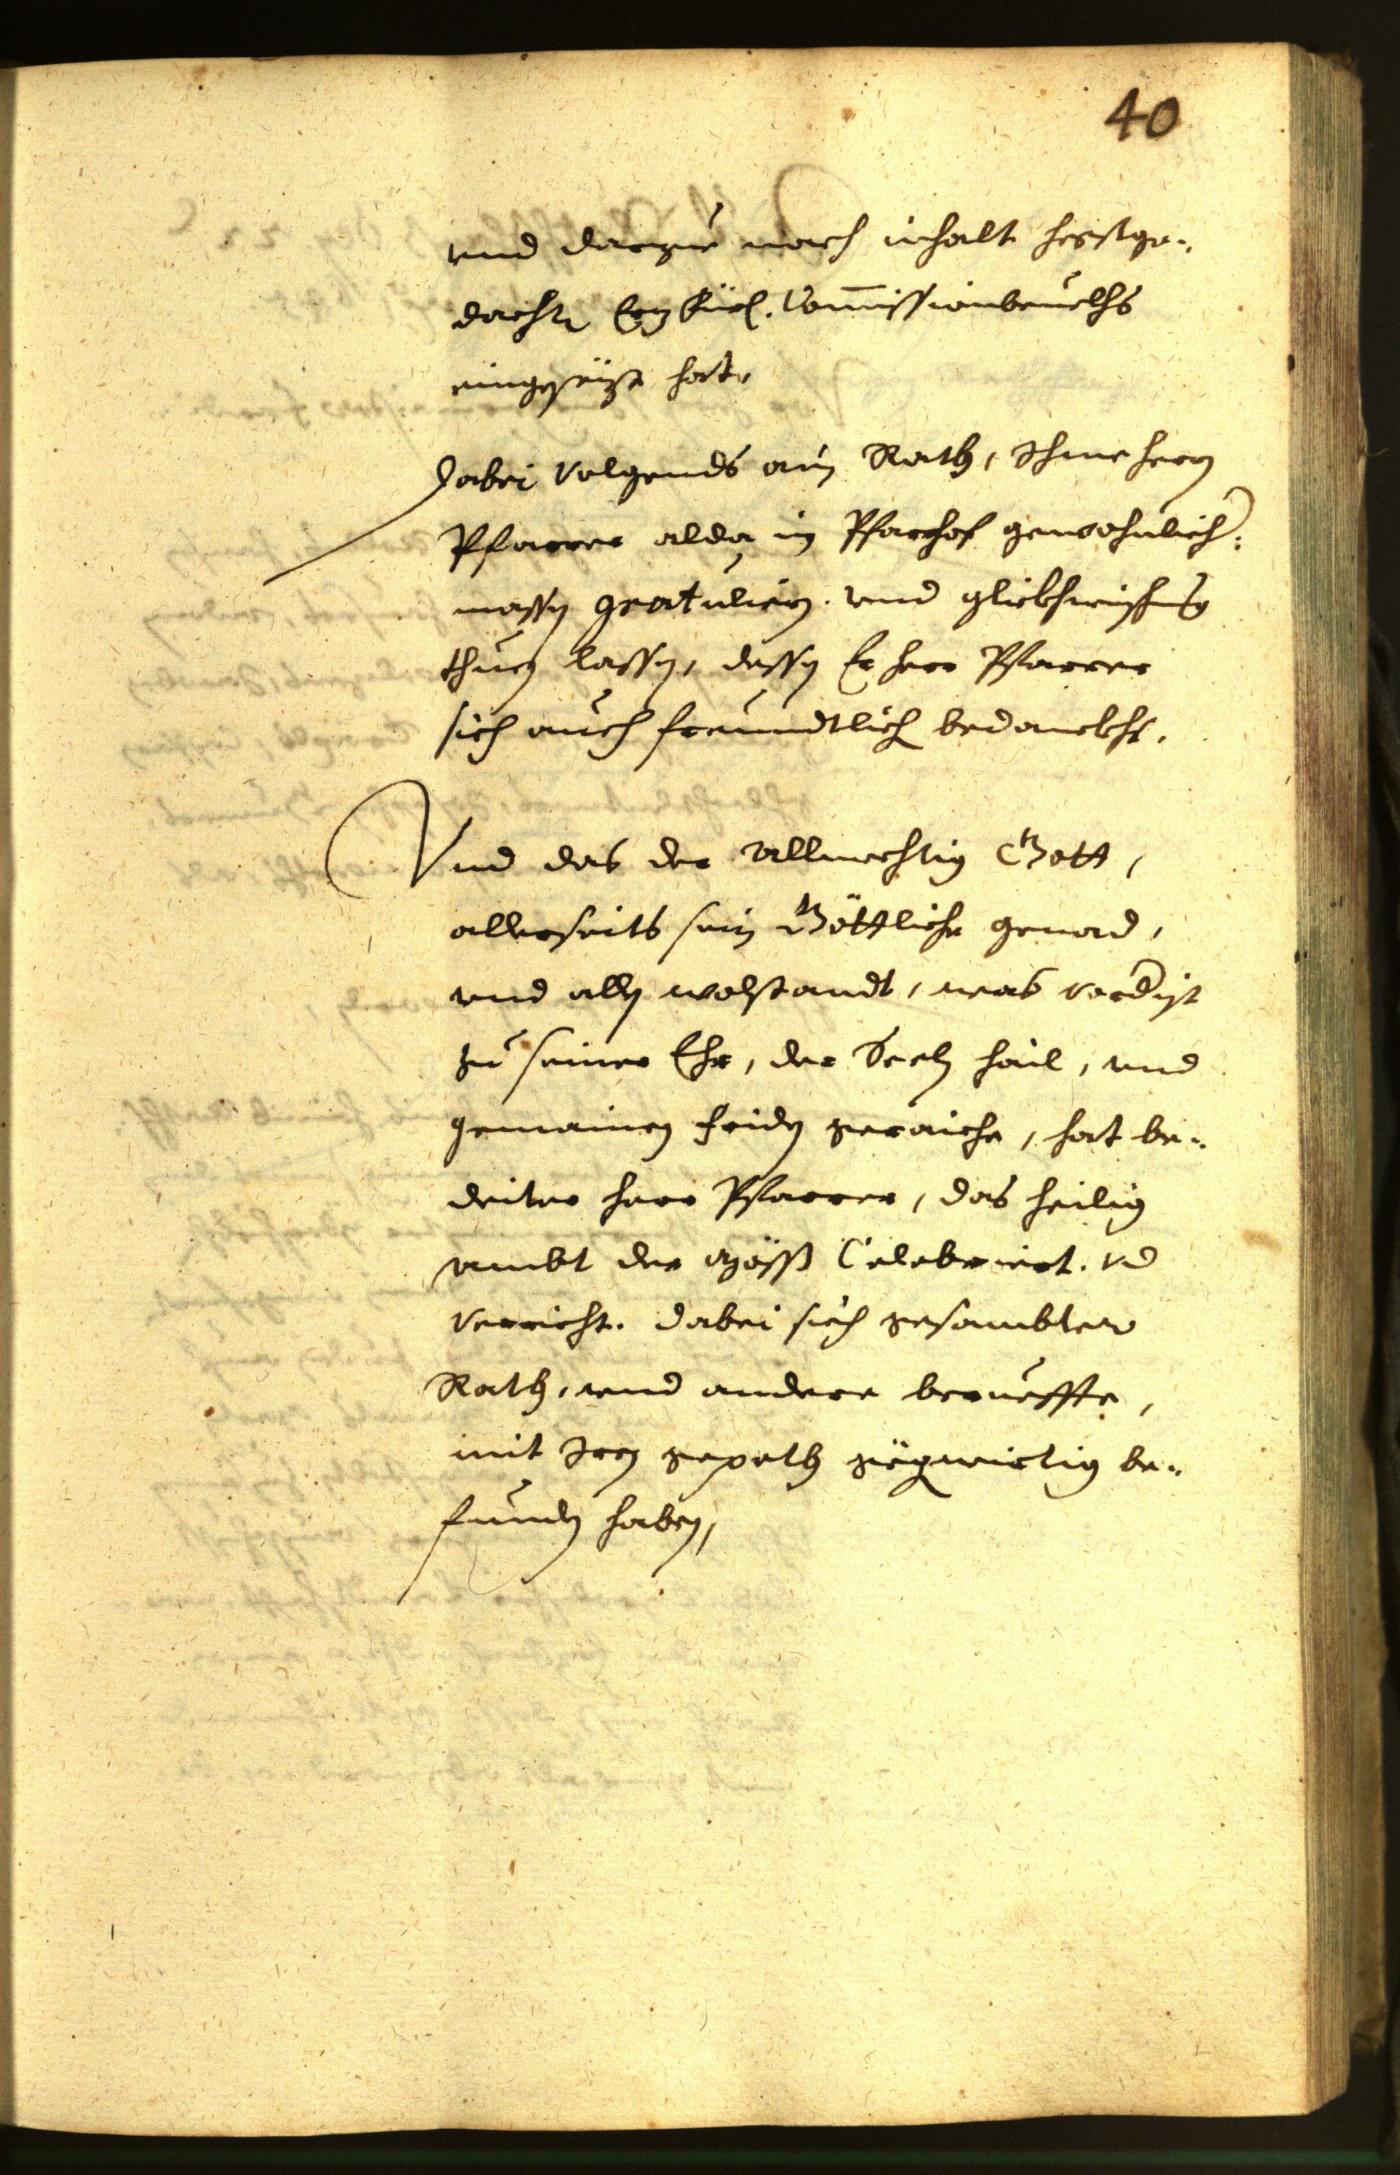 40
vnd darzue nach inhalt hegstge¬
dachte Commissionbeuelhs
eingesäzt hat.
Dabei volgends ain Rath, Ihme herrn
Pfarrer alda in Pfarrhof gewohnlicher
massen gratulieren. vnd glickhwinschung
thuen lassen, dessen Er herr Pfarrer
sich auch freundtlich bedanckht.
Vnd das der Allmechtig Gott,
allerseits sein Göttliche genad,
vnd allen wolstandt, was vordist
zu seiner Ehr, der Seeln hail, vnd
gemainen friden geraiche, hat be¬
deiter herr Pfarrer, das heilig
ambt der Mäss Celebriert. vnd
verricht. dabei sich gesambter
Rath, vnd andere berueffte,
mit Iren gepeth gegenwirtig be¬
funden haben,